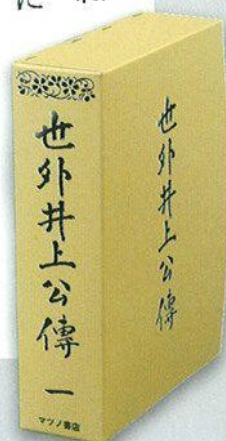 世外井上公傳
一
マツノ書店
世外井上公傳